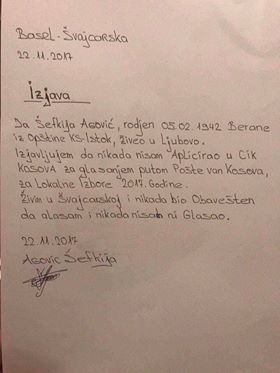 Basel - Švajcarska
22.11.2017
Izjava
Ja Šefkija Agović, rodjen 05.02.1942 Berane
iz Opštine KS-Istok, živeo u Ljubovo.
Izjavljujem da nikada nisam Aplicirao u Cik
Kosova za glasanjem putom Pošte van Kosova,
za Lokalne Izbore 2017. Godine.
Živim u Švajcarskoj i nikada bio Obavešten
da glasam i nikada nisam ni Glasao.
22.11.2017
Agovic Šefkija